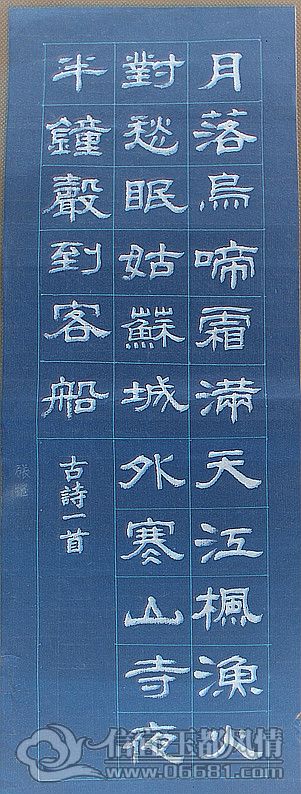 月落烏啼霜滿天江楓漁火
對愁眠姑蘇城外寒山寺夜
半鐘聲到客船
古詩一首
信宜玉都风情
www.06681.com